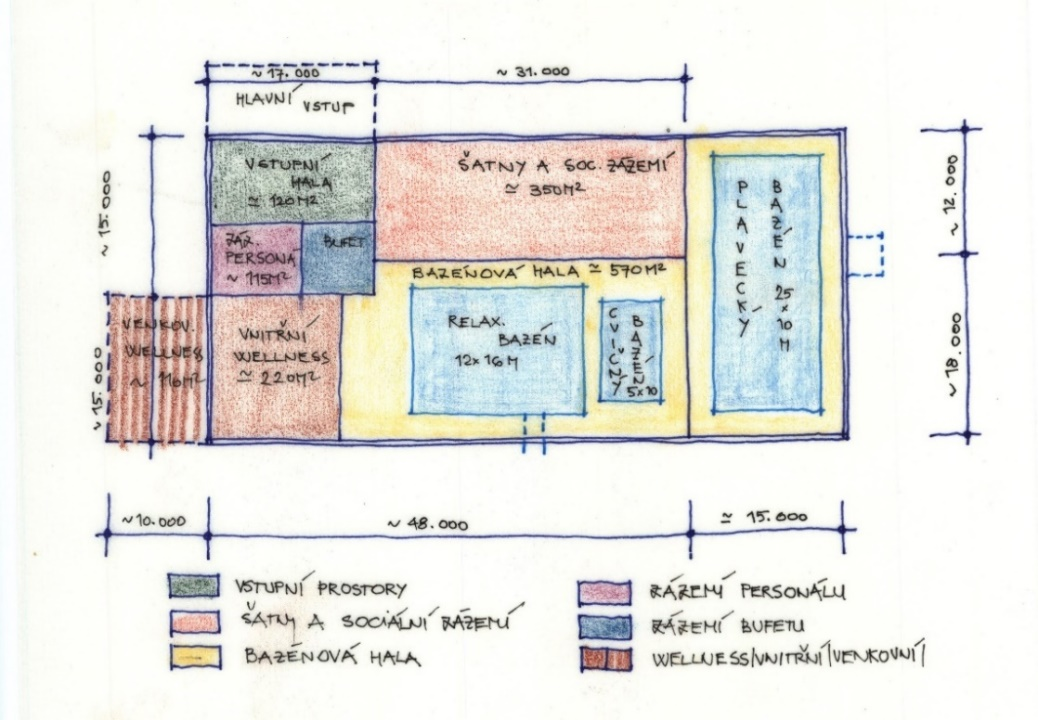 ~ 17.000
~ 31.000
HLAVNÍ VSTUP
VSTUPNÍ
HALA
≃ 120M²
ŠATNY A SOC. ZÁZEMÍ
≃ 350M²
ZÁZ.
PERSONÁ
~ 115M²
BUFET
BAZÉNOVÁ HALA ≃ 570M²
PLAVECKÝ
BAZÉN 25x10M
~ 15.000
~ 12.000
VENKOV.
WELLNESS
~ 110M²
VNITŘNÍ
WELLNESS
≃ 220M²
RELAX.
BAZÉN
12x16M
CVIČNÝ
BAZÉN
5x10
~ 15.000
~ 18.000
~ 10.000
~ 48.000
≃ 15.000
VSTUPNÍ PROSTORY
ŠATNY A SOCIÁLNÍ ZÁZEMÍ
BAZÉNOVÁ HALA
ZÁZEMÍ PERSONÁLU
ZÁZEMÍ BUFETU
WELLNESS/VNITŘNÍ/VENKOVNÍ/